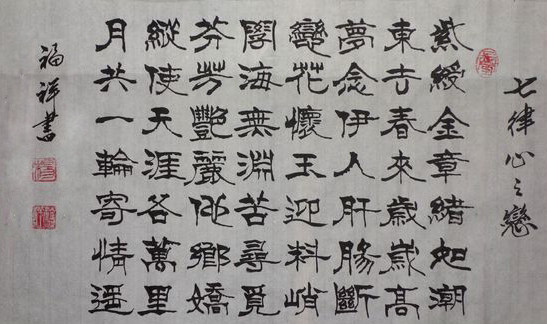 七律心之戀
紫綬金章緒如潮
東去春來歲歲高
夢念伊人肝腸斷
戀花懷玉迎料峭
學海無淵苦尋覓
芬芳艷麗他鄉嬌
縱使天涯各萬里
月共一輪寄情遥
福祥書